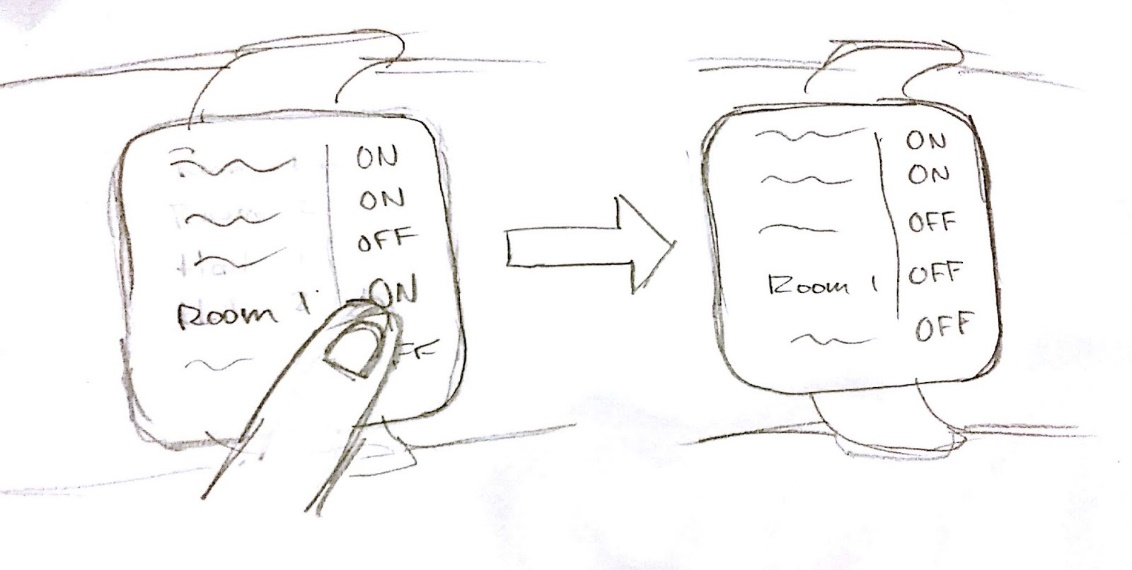 ON
ON
OFF
Room 1 ON
FF
ON
ON
OFF
Room 1 OFF
OFF